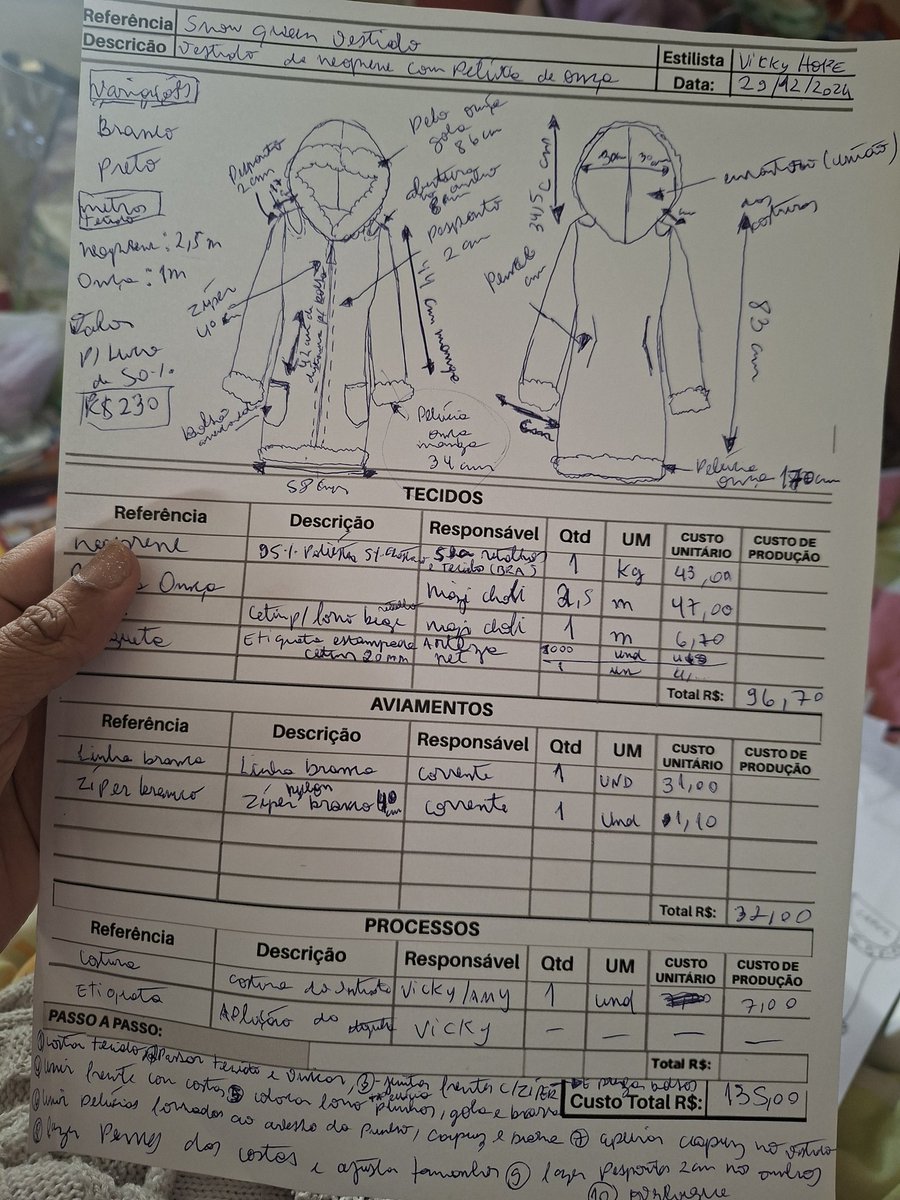 Referência Snow queen vestido
Descrição vestido de neoprene com pelúcia de onça
Estilista Vicky HOPE
Data: 29/12/2024
Variações
Branco
Preto
metros
tecido
neoprene: 2,5 m
Onça: 1m
p/ Lucro
de 50%
R$230
Pesponto
2 cm
Pelo onça
gola
86cm
abertura
8cm
Pesponto
2 cm
44 cm manga
Zíper
40 cm
42 cm de
distância p/ bolso
Bolso
Pelúcia
onça
manga
34 cm
58 cm
34,5 cm
30cm 30cm
(união)
nas
costuras
83 cm
6cm
Pelúcia
onça 170cm
TECIDOS
Referência Descrição Responsável Qtd UM CUSTO UNITÁRIO CUSTO DE PRODUÇÃO
neoprene 95% Poliéster 5% tecido (BRA) 1 Kg 43,00
Onça 2,5 m 47,00
Cetim p/ forro bege 1 m 6,70
Etiqueta estampada cetim 20mm 1000 und
Total R$: 96,70
AVIAMENTOS
Referência Descrição Responsável Qtd UM CUSTO UNITÁRIO CUSTO DE PRODUÇÃO
Linha branca Linha branca corrente 1 UND 31,00
Zíper branco Zíper nylon branco 40 cm corrente 1 und 1,10
Total R$: 32,00
PROCESSOS
Referência Descrição Responsável Qtd UM CUSTO UNITÁRIO CUSTO DE PRODUÇÃO
Costura costura do Vicky/Amy 1 und 7,00
Etiqueta Aplicação da Vicky — — — —
Total R$:
Custo Total R$: 135,00
PASSO A PASSO:
① cortar tecido, ② Passar tecido e ③ juntar frentes c/ZÍPER
④ Unir frente com costas ⑤ colocar forro punhos, gola e barra
⑥ Unir pelúcias forradas ao do Punho, capuz e barra ⑦ capuz no vestido
⑧ fazer Pences das costas e ajustar tamanho ⑨ fazer pespontos 2cm no ombros
⑩